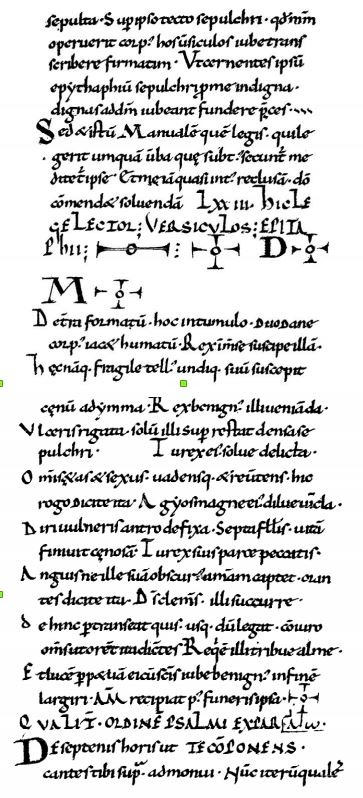 sepulta. Sup ipso tecto sepulchri. qđ m̃m
operuerit corp' hos ũsiculos iube trans
scribere firmatim. Ut cernentes ipsũ
epytaphiũ sepulchri p me indigna.
dignas ad dm̃ iubeant fundere p̃ces.
Sed & istũ Manualẽ quẽ legis. qui le
gerit umquã ũba que subt' secunt̃ me
ditet ipse Et me iã quasi int' reclusã. dõ
cõmend& soluendã LXXIII. HIC LE
GE LECTOR; VERSICULOS: EPITA
PHII; D
M
De t̃ra formatũ. hoc in tumulo. Duodane
corp' iac& humatũ. Rex im̃se suscipe illã.
Hec nãq. fragile tell' undiq. suũ suscepit
cenũ ad ymma. Rex benign' illi ueniã da.
Ulceris rigata. solũ illi sup restat densa se
pulchri. Tu rex ei solue delicta.
Om̃is &as & sexus. uadensq. & reũtens. hic
rogo dicite ita. Agyos magne ei' dilue vĩcla.
Diri vulneris antro defixa. Septa fell̃is. vitã
finiuit cenosã Tu rex suis parce peccatis.
Anguis ne ille suã obscur' animam captet. oran
tes dicite ita. D̃s clem̃s. illi succurre.
De hinc ptranseat quis. usq. dũ legat. cõiuro
om̃s ut orẽt ita dic̃tes Reqẽ illi tribue alme.
Et lucẽ ppetuã ei cũ sc̃is iube benign' in finẽ
largiri. AM̃ recipiat p' funeris ipsa.
QUALIT̃. ORDINẼ PSALMI EX PAR
De septenis horis ut TE CÕPONENS.
cantes tibi sup'. admonui. Nũc iterũ qualĩt